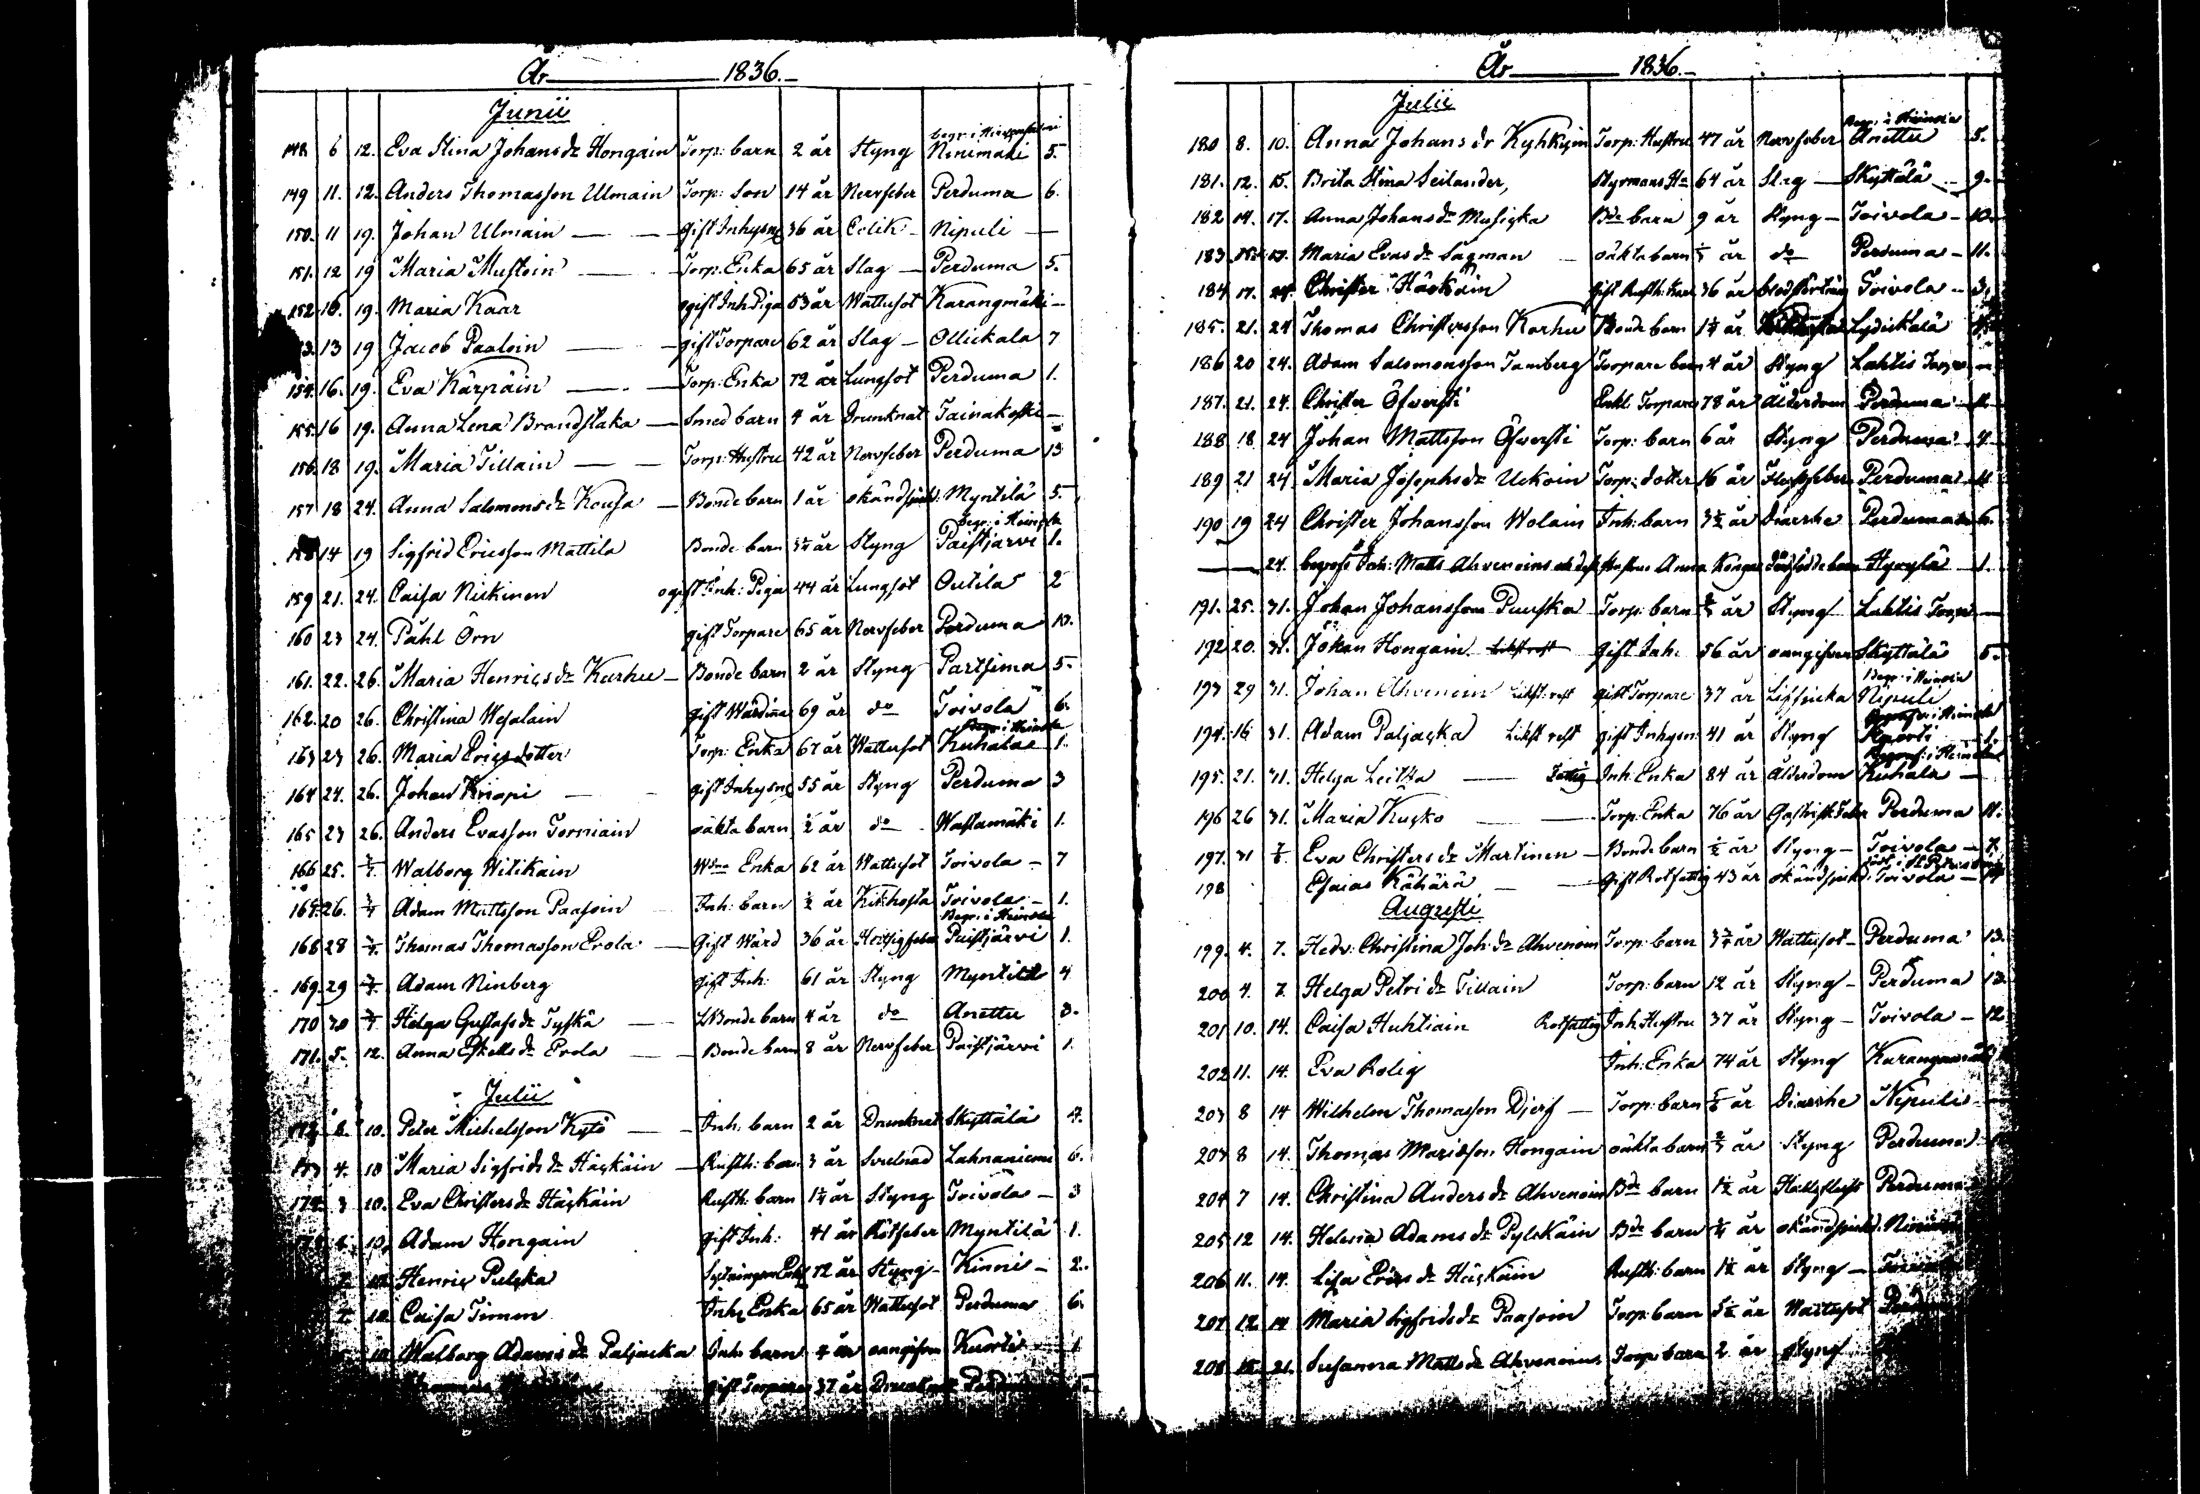 År 1836.
Junii
148 6 12. Eva Stina Johansdr Hongain Torp: barn 2 år Styng Ninimäki 5.
149 11. 12. Anders Thomasson Ulmain Torp: Son 14 år Nervfeber Perduma 6.
150. 11 19. Johan Ulmain gift Inhysing 36 år Colik Nipuli
151. 12 19 Maria Mustoin Torp. Enka 65 år Slag Perduma 5.
152 19. Maria Kaar ogift Inh. Piga 53 år Wattusot Karangmäki
13 19 Jacob Paaloin gift Torpare 62 år Slag Ollickala 7
154. 16. 19. Eva Kärpäin Torp: Enka 72 år Lungsot Perduma 1.
155. 16 19. Anna Lena Brandstaka Smed barn 4 år Drunknat Tainakoski
156. 18 19. Maria Tillain Torp: Hustru 42 år Nervfeber Perduma 13
157 18 24. Anna Salomonsdr Kousa Bonde barn 1 år okänd sjukd. Myntilä 5.
14 19 Sigfrid Ericsson Mattila Bonde barn år Styng Paistjärvi 1.
159 21. 24. Caisa Nickinen ogift Inh: Piga 44 år Lungsot Outila 2
160 23 24. Påhl Örn gift Torpare 65 år Nervfeber Perduma 10.
161. 22. 26. Maria Henricsdr Kurhu Bonde barn 2 år Styng Partsima 5.
162. 20 26. Christina Wesalain gift Wärdinna 69 år do Toivola 6.
Begr: i Heinola
163 23 26. Maria Ericsdotter Torp: Enka 67 år Wattusot Kuhala 1.
164 24. 26. Johan Knapi gift Inhysing 55 år Styng Perduma 3
165 23 26. Anders Evasson Torniain oäkta barn ½ år do Wastamäki 1.
166 25. 3/7 Walborg Witikain Wdna Enka 62 år Wattusot Toivola 7
26. 3/7 Adam Mattsson Paasoin Inh: barn ½ år Kikhosta Toivola 1.
Begr: i Heinola
168 28 3/7 Thomas Thomasson Erola Gift Wärd 36 år Hetsig feber Paistjärvi 1.
169. 29 3/7 Adam Ninberg gift Inh: 61 år Styng Myntilä 4
170 30 3/7 Helga Gustafsdr Tyskä Bonde barn 4 år do Anettu 3.
171. 5. 12. Anna Eskelsdr Erola Bonde barn 8 år Nervfeber Paistjärvi 1.
Julii
10. Peter Michelsson Kytö Inh: barn 2 år Drunknat Skyttälä 4.
4. 10 Maria Sigfridsdr Häckäin Rusth: barn 3 år Svulnad Lahnaniemi 6.
174 3 10. Eva Christersdr Häckäin Rusth: barn 1¼ år Styng Toivola 3
10. Adam Hongain gift Inh: 41 år Rötfeber Myntilä 1.
10. Henric Pulcka 72 år Styng Kinni 2.
10. Caisa Timon Inh: Enka 65 år Wattusot Perduma 6.
10 Walborg Adamsdr Paljacka Inh: barn 4 år oangifven Kuorti 1
gift Torpare 37 år
År 1836.
Julii
Begr: i Heinola
180 8. 10. Anna Johansdr Kyhkyin Torp: Hustru 47 år Nervfeber Anettu 5.
181. 12. 15. Brita Stina Seilander, Styrmans Hu 64 år Slag Skyttälä 9.
182 14. 17. Anna Johansdr Musicka Bde barn 9 år Styng Toivola 10.
183 15. 17. Maria Evasdr Sågman oäkta barn år do Perduma 11.
184 17. 24. Christer Häckäin gift Rusth: 36 år Toivola 3.
185. 21. 24 Thomas Christersson Korhu Bonde barn 1¼ år Lydickälä
186 20 24. Adam Salomonsson Tamberg Torpare barn 4 år Styng Lahtis Torp
187. 21. 24. Christer Öfwersti Enkl. Torpare 78 år Ålderdom Perduma
188 18 24 Johan Mattsson Öfwersti Torp: barn 6 år Styng Perduma 4.
189 21 24 Maria Josephsdr Uckoin Torp: dotter 16 år Perduma 11
190 19 24 Christer Johansson Wolain Inh: barn 3½ år Diarrhe Perduma 6.
24. begrofs Inh: Matts Ahvenoins Hustrus Anna dödfödde barn Hyrylä 1.
191. 25. 31. Johan Johansson Puuska Torp: barn år Styng Lahtis Torp
192 20. 31. Johan Hongain gift Inh: 56 år oangifven Skyttälä 5.
Begr: i Heinola
193 29 31. Johan Ahvenoin gift Torpare 37 år Nipuli
Begrofs: i Heinola
194. 16 31. Adam Paljacka gift Inhysn: 41 år Styng Kuorti 1.
Begrofs: i Heinola
195. 21. 31. Helga Leitka Fattig Inh: Enka 84 år Ålderdom Kuhala
196 26 31. Maria Kucko Torp: Enka 76 år Gastrisk Feber Perduma 11.
197. 31 7/8. Eva Christersdr Martinen Bonde barn ½ år Styng Toivola 7.
död: i St. Petersburg
198 Esaias Kähärä Gift Rotfattig 43 år okänd sjukd: Toivola
Augusti
199. 4. 7. Hedv: Christina Joh:dr Ahvenoin Torp: barn 3¾ år Wattusot Perduma 13.
200 4. 7. Helga Petri dr Tillain Torp: barn 12 år Styng Perduma 13.
201 10. 14. Caisa Huhtiain Rotfattig Inh: Hustru 37 år Styng Toivola 12
202 11. 14. Eva Rolig Inh: Enka 74 år Styng Karangmäki
203 8 14 Wilhelm Thomasson Djerf Torp: barn år Diarrhe Nipuli
203 8 14. Thomas Mariasson Hongain oäkta barn år Styng Perduma
204 7 14. Christina Andersdr Ahvenoin Bde barn 1½ år Perduma
205 12 14. Helena Adamsdr Pylckäin Bde barn år okänd sjukd:
206 11. 14. Lisa Ericsdr Häckäin Rusth: barn 1½ år Styng
207 12 14 Maria Sigfridsdr Paasoin Torp: barn 5½ år Wattusot
208 15. 21. Susanna Mattsdr Ahvenoin Torp: barn 2 år Styng